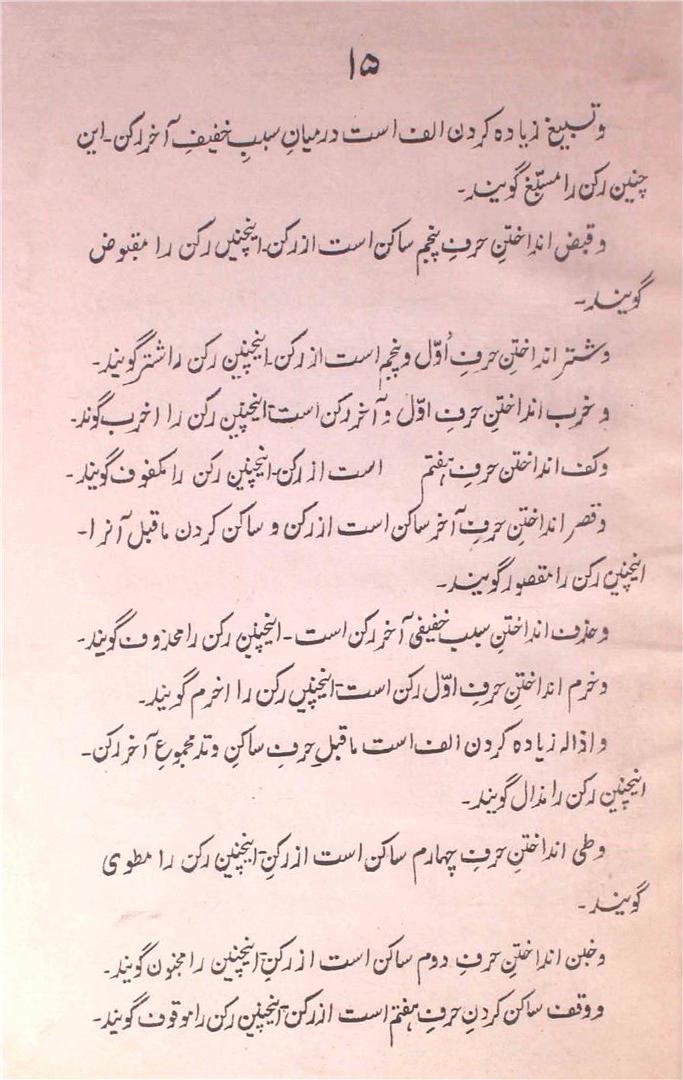 ۱۵
و تسبیغ زیادہ کردن الف است درمیانِ سببِ خفیفِ آخر رکن۔ این
چنین رکن را مسبّغ گویند۔
و قبض انداختنِ حرفِ پنجم ساکن است از رکن۔ اینچنیں رکن را مقبوض
گویند۔
و شتر انداختنِ حرفِ اُوّل و پنجم است از رکن۔ اینچنین رکن را شتر گویند۔
و خرب انداختنِ حرفِ اوّل و آخر رکن است۔ اینچنین رکن را اخرب گوند۔
و کف انداختن حرفِ ہفتم است از رکن۔ اینچنین رکن را مکفوف گویند۔
و قصر انداختنِ حرفِ آخر ساکن است از رکن و ساکن کردن ماقبل آنرا۔
اینچنین رکن را مقصور گویند۔
و حذف انداختنِ سببِ خفیفی آخر رکن است۔ اینچنین رکن را محذوف گویند۔
و خرم انداختنِ حرفِ اوّل رکن است۔ اینچنیں رکن را اخرم گویند۔
و اذالہ زیادہ کردن الف است ماقبلِ حرفِ ساکنِ وتدِ مجموعِ آخر رکن۔
اینچنین رکن را مذال گویند۔
و طی انداختنِ حرفِ چہارم ساکن است از رکن۔ اینچنین رکن را مطوی
گویند۔
و خبن انداختنِ حرفِ دوم ساکن است از رکن۔ اینچنین را مجنون گویند۔
و وقف ساکن کردنِ حرفِ ہفتم است از رکن۔ اینچنین رکن را موقوف گویند۔